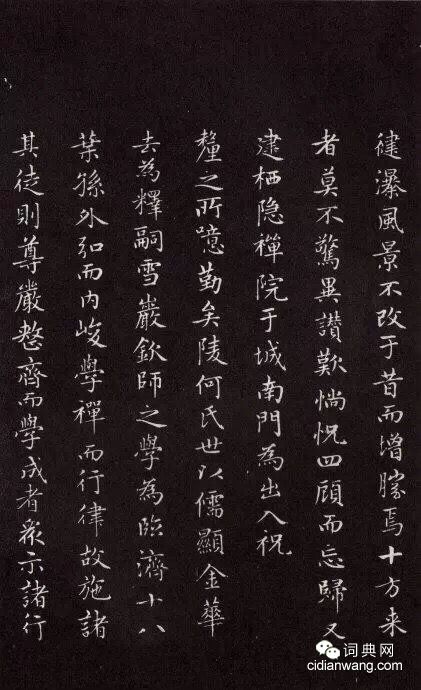 徤瀑風景不改于昔而增勝焉十方来
者莫不驚異讚歎惝怳四顧而忘歸又
建栖隐禪院于城南門為出入祝
釐之所噫勤矣陵何氏世以儒顯金華
去為釋嗣雪巖欽師之學為臨濟十八
葉孫外弘而内峻學禪而行律故施諸
其徒則尊嚴整齊而學成者衆示諸行
词典网
cidianwang.com